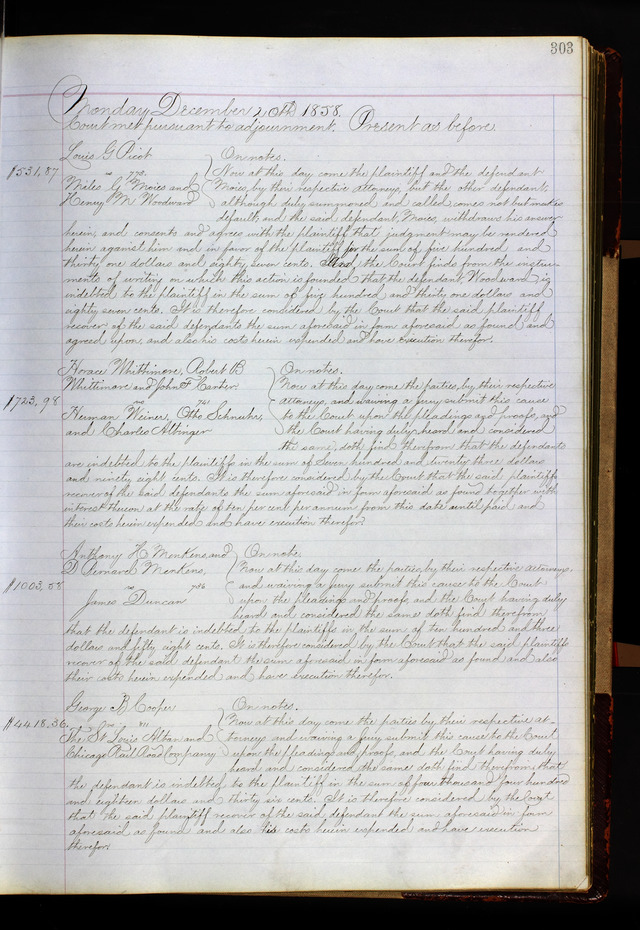 303
Monday December 20th 1858.
Court met pursuant to adjournment. Present as before.
Louis G. Picot
On notes.
$531,87
vs 773.
Now at this day come the plaintiff and the defendant
Miles G. Moies and
Moies, by their respective attorneys, but the other defendant,
Henry M. Woodward
although duly summoned and called comes not but makes
default; and the said defendant, Moies, withdraws his answer
herein, and consents and agrees with the plaintiff that judgment may be rendered
herein against him and in favor of the plaintiff for the sum of five hundred and
thirty one dollars and eighty seven cents. And the Court finds from the instru-
ments of writing on which this action is founded that the defendant, Woodward is
indebted to the plaintiff in the sum of five hundred and thirty one dollars and
eighty seven cents. It is therefore considered by the Court that the said plaintiff
recover of the said defendants the sum aforesaid in form aforesaid as found and
agreed upon, and also his costs herein expended and have execution therefor.
Horace Whittimore, Robert B
On notes.
Whittimore and John F. Carter
Now at this day come the parties, by their respective
$723,98
vs 741
attorneys, and waiving a jury submit this cause
Herman Weiner, Otto Schnuhr,
to the Court upon the pleadings and proofs, and
and Charles Albinger
the Court having duly heard and considered
the same, doth find therefrom that the defendants
are indebted to the plaintiffs in the sum of Seven hundred and twenty three dollars
and ninety eight cents. It is therefore considered by the Court that the said plaintiffs
recover of the said defendants the sum aforesaid in form aforesaid as found together with
interest thereon at the rate of ten per cent per annum from this date until paid and
their costs herein expended and have execution therefor.
Anthony H. Menkens, and
On note.
D. Bernard Menkens,
Now at this day come the parties by their respective attorneys,
$1003,58
vs 786
and waiving a jury submit this cause to the Court
James Duncan
upon the pleadings and proofs, and the Court having duly
heard and considered the same doth find therefrom
that the defendant is indebted to the plaintiffs in the sum of ten hundred and three
dollars and fifty eight cents. It is therefore considered by the Court that the said plaintiffs
recover of the said defendant the sum aforesaid in form aforesaid as found and also
their costs herein expended and have execution therefor.
George B. Cooper
On notes.
$4418,36.
vs 811
Now at this day come the parties by their respective at-
The St Louis Alton and
torneys and waiving a jury submit this cause to the Court
Chicago Rail Road Company
upon the pleadings and proofs, and the Court having duly
heard and considered the same doth find therefrom that
the defendant is indebted to the plaintiff in the sum of four thousand four hundred
and eighteen dollars and thirty six cents. It is therefore considered by the Court
that the said plaintiff recover of the said defendant the sum aforesaid in form
aforesaid as found and also his costs herein expended and have execution
therefor.